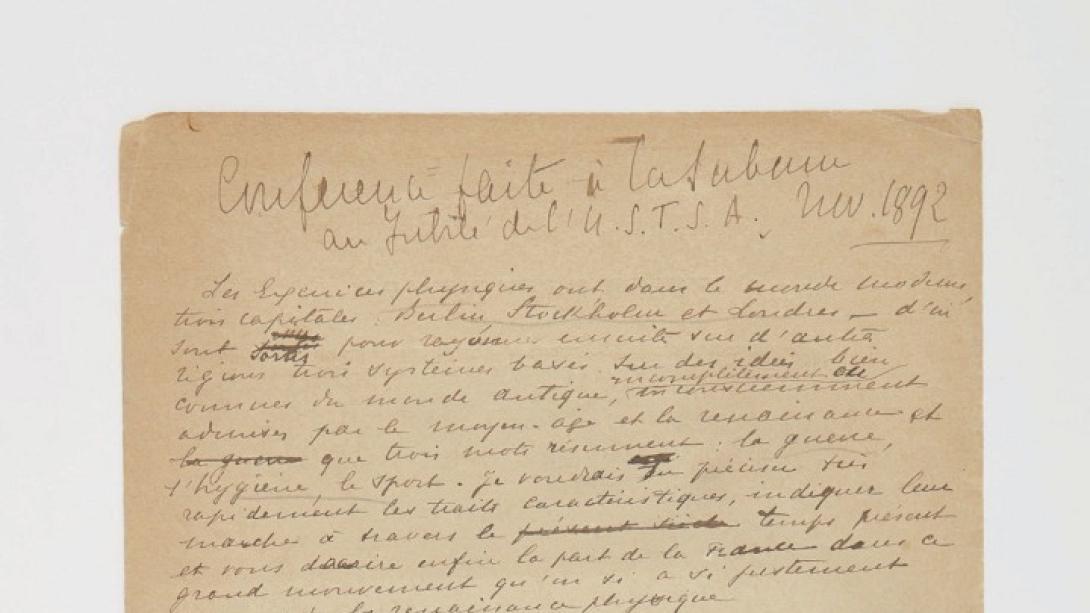 Conférence faite à la Sorbonne
au Jubilé de l'U.S.F.S.A. Nov. 1892
Les Exercices physiques ont dans le monde moderne
trois capitales : Berlin Stockholm et Londres – d'où
sont sortis pour rayonner ensuite sur d'autres
régions trois systèmes basés sur des idées bien
connues du monde antique, incomplètement ou inconsciemment
admises par le moyen-âge et la renaissance et
la guerre que trois mots résument : la guerre,
l'hygiène, le sport. Je voudrais en préciser très
rapidement les traits caractéristiques, indiquer leur
marche à travers le présent siècle temps présent
et vous dire enfin la part de la France dans ce
grand mouvement qu'on a si justement
la renaissance physique